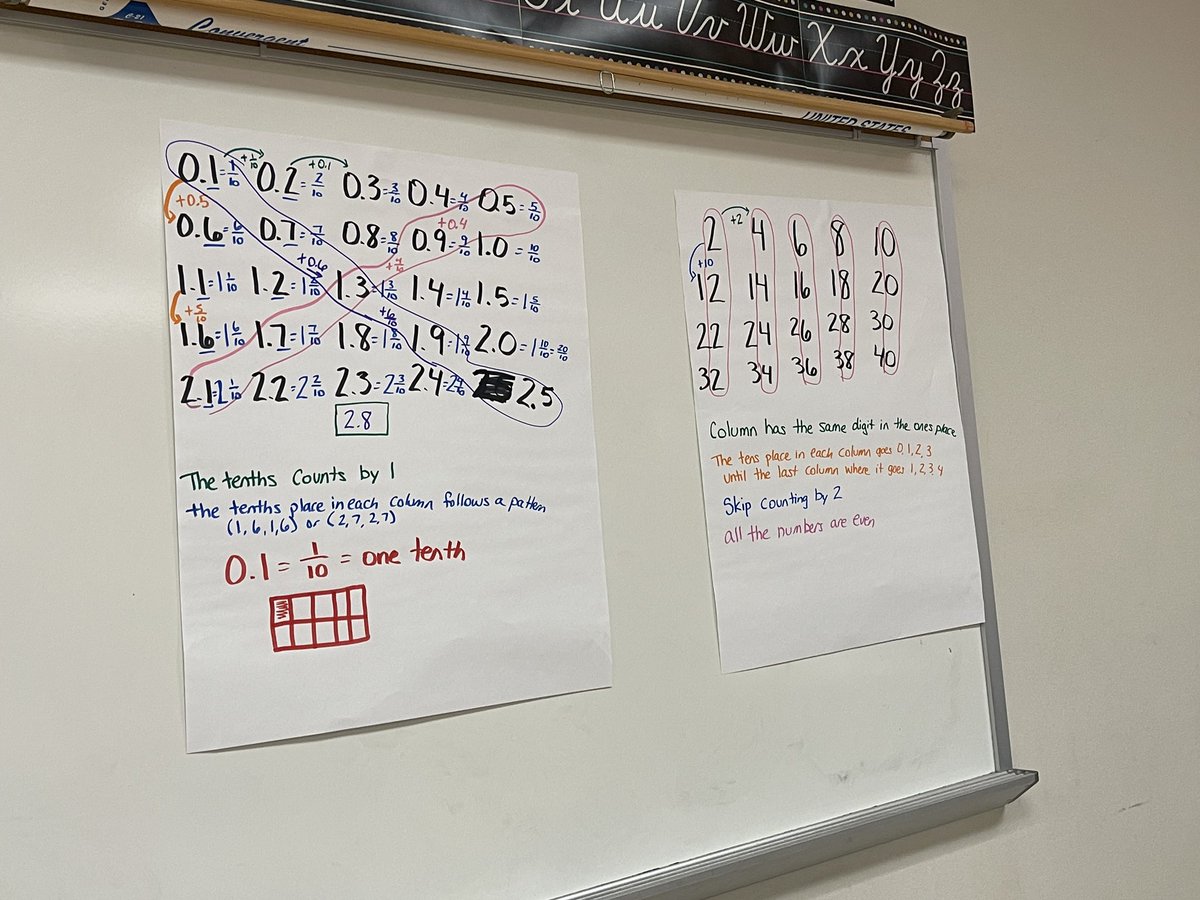 Convergent
Uu Vv Ww Xx Yy Zz
UNITED STATES
0.1 = 1/10 0.2 = 2/10 0.3 = 3/10 0.4 = 4/10 0.5 = 5/10
+1/10 +0.1
+0.5
0.6 = 6/10 0.7 = 7/10 0.8 = 8/10 0.9 = 9/10 1.0 = 10/10
+0.4
+0.6 +4/10
1.1 = 1 1/10 1.2 = 1 2/10 1.3 = 1 3/10 1.4 = 1 4/10 1.5 = 1 5/10
+5/10 +6/10
1.6 = 1 6/10 1.7 = 1 7/10 1.8 = 1 8/10 1.9 = 1 9/10 2.0 = 1 10/10 = 20/10
2.1 = 2 1/10 2.2 = 2 2/10 2.3 = 2 3/10 2.4 = 2 4/10 2.5
2.8
The tenths Counts by 1
the tenths place in each column follows a pattern
(1, 6, 1, 6) or (2, 7, 2, 7)
0.1 = 1/10 = one tenth
2 4 6 8 10
+2
+10
12 14 16 18 20
22 24 26 28 30
32 34 36 38 40
Column has the same digit in the ones place
The tens place in each column goes 0, 1, 2, 3
until the last column where it goes 1, 2, 3, 4
Skip counting by 2
all the numbers are even